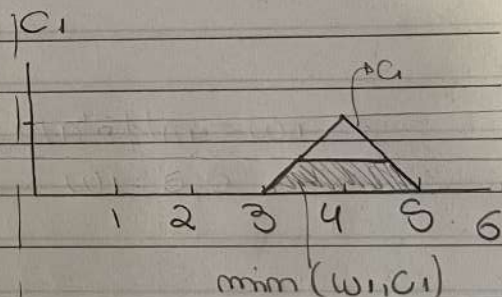 C1
C1
1 2 3 4 5 6
min (w1, C1)